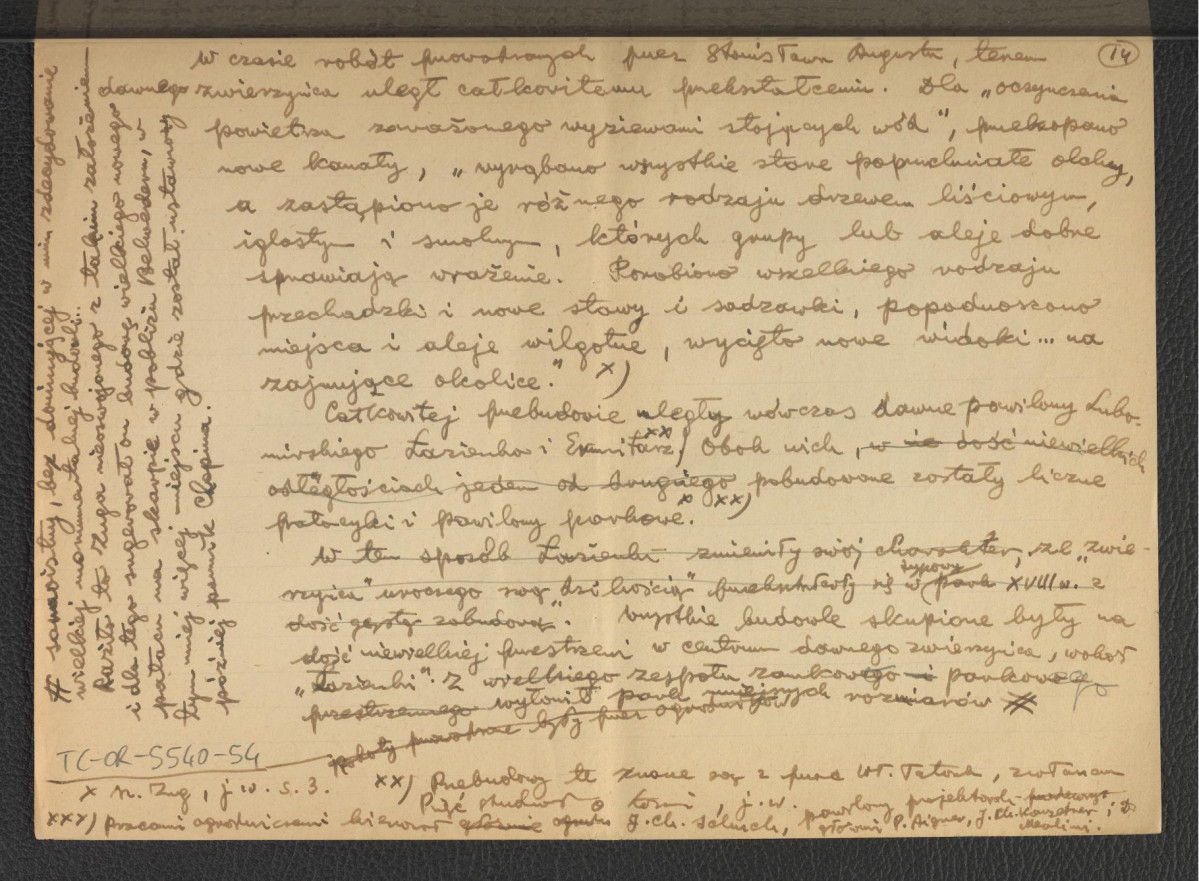 14
W czasie robót prowadzonych przez Stanisława Augusta, teren
dawnego zwierzyńca uległ całkowitemu przekształceniu. Dla „oczyszczenia
powietrza zarażonego wyziewami stojących wód", przekopano
nowe kanały, „wyrąbano wszystkie stare popruchniałe olchy,
a zastąpiono je różnego rodzaju drzewem liściowym,
iglastym i smolnym, których grupy lub aleje dobre
sprawiają wrażenie. Porobiono wszelkiego rodzaju
przechadzki i nowe stawy i sadzawki, popodnoszono
miejsca i aleje wilgotne, wycięto nowe widoki... na
zajmujące okolice." x)
Całkowitej przebudowie uległy wówczas dawne pawilony Lubo-
mirskiego Łazienka i Ermitarz xx) Obok nich, w nie dość niewielkich
odległościach jeden od drugiego pobudowane zostały liczne
pałacyki i pawilony parkowe. x xx)
W ten sposób Łazienki zmieniły swój charakter, ze „zwie-
rzyńca" uroczego swą „dzikością" przekształciły się w typowy park XVIII w. z
dość gęstą zabudową". Wszystkie budowle skupione były na
dość niewielkiej przestrzeni w centrum dawnego zwierzyńca, wokół
„Łazienki". Z wielkiego zespołu zamkowego i parkowego
przestrzennego wyłonił park mniejszych rozmiarów #
Roboty prowadzone były przez ogrodników
# samoistny, bez dominującej w nim zdecydowanie
wielkiej monumentalnej budowli.
Raziło to Zuga nieoswojonego z takim założeniem
i dla tego sugerował on budowę wielkiego nowego
pałacu na skarpie w pobliżu Belwederu, w
tym mniej więcej miejscu gdzie został ustawiony
później pomnik Chopina.
TC-OR-5540-54
x Sz. Zug, j.w. s. 3. xx) Przebudowy te znane są z prac Wł. Tatark, zwłaszcza
Pięć studiów o Łazni, j.w.
xxx) Pracami ogrodniczemi kierował głównie ogrodn J. Ch. Schuch, pawilony projektowali
głównie P. Aigner, J. Ch. Kamsetzer i D.
Merlini.